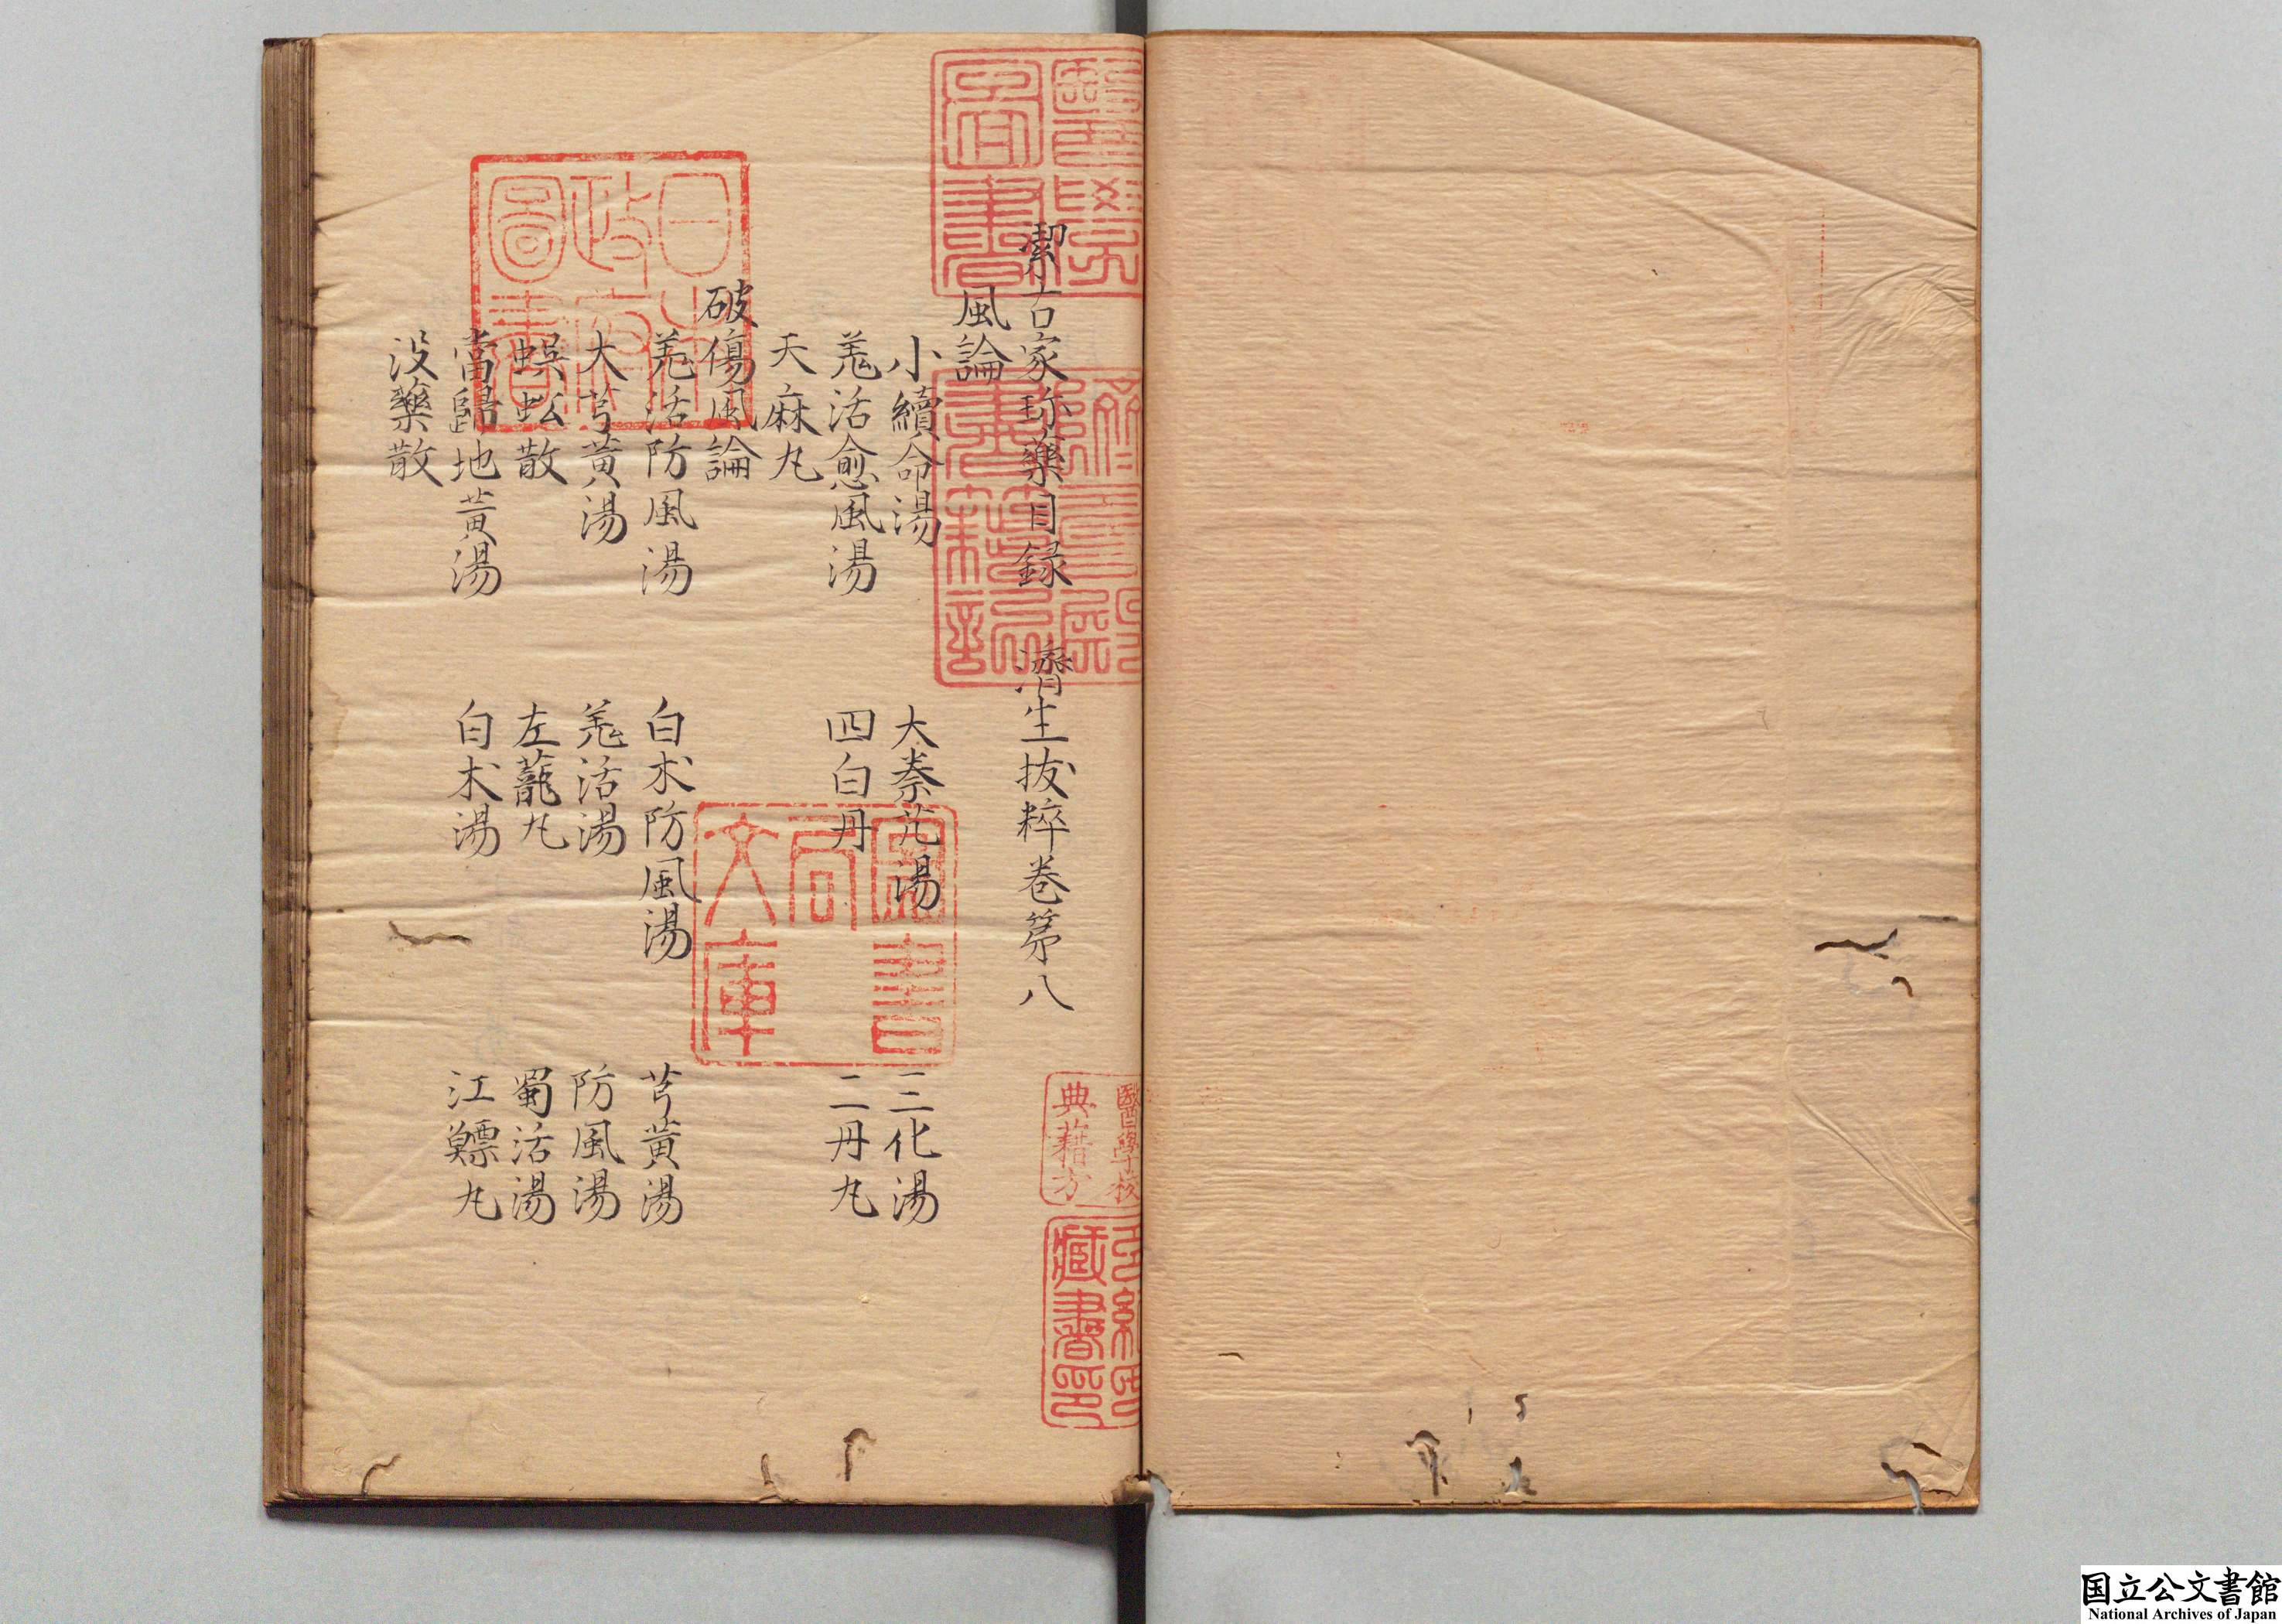 潔古家珎藥目録　濟生拔粹卷第八
風論
小續命湯　大秦艽湯　三化湯
羗活愈風湯　四白丹　二丹丸
天麻丸
破傷風論
羗活防風湯　白朮防風湯　芎黃湯
大芎黃湯　羗活湯　防風湯
蜈蚣散　左蘢丸　蜀活湯
當歸地黃湯　白朮湯　江鰾丸
没藥散
日本
政府
圖書
圖書
局
文庫
醫學校
典籍方
藏書印
国立公文書館
National Archives of Japan